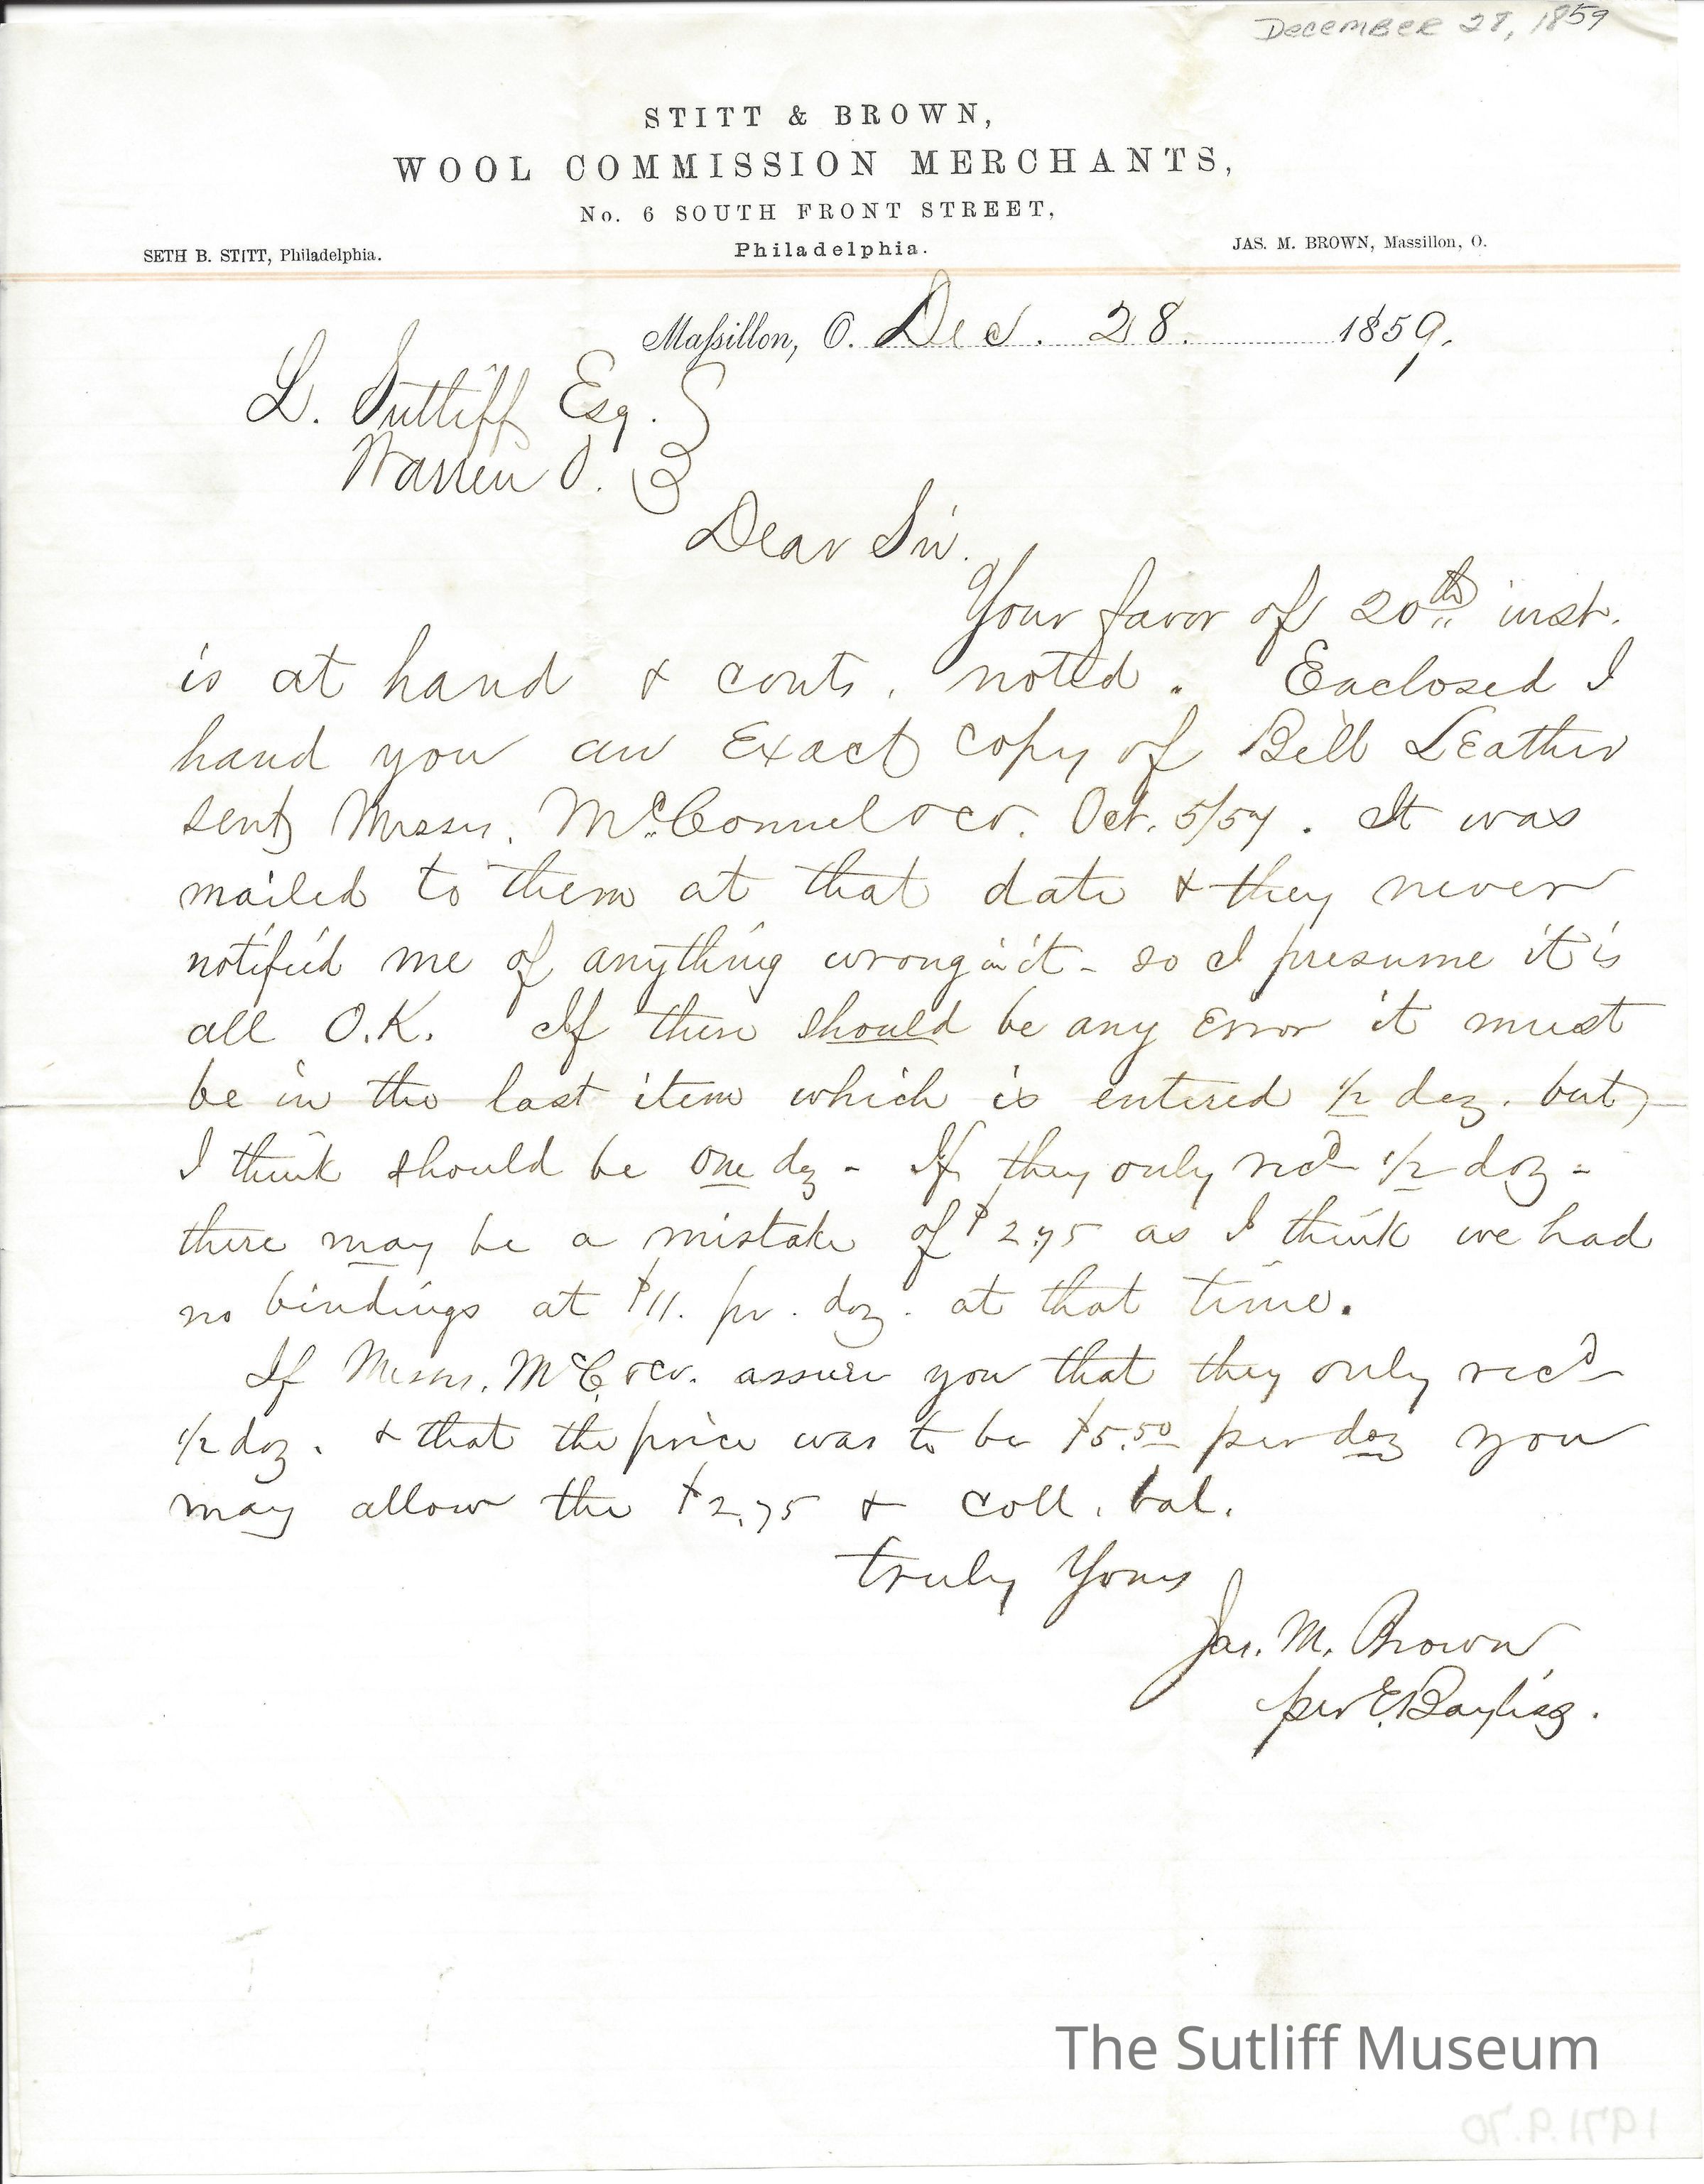 December 28, 1859
STITT & BROWN,
WOOL COMMISSION MERCHANTS,
No. 6 SOUTH FRONT STREET,
Philadelphia.
SETH B. STITT, Philadelphia.
JAS. M. BROWN, Massillon, O.
Massillon, O. Dec. 28. 1859.
L. Sutliff Esq.
Warren O.
Dear Sir.
Your favor of 20th inst.
is at hand & conts. noted. Enclosed I
hand you an Exact copy of Bill Leather
sent Messrs. McConnel & co. Oct. 5/57. It was
mailed to them at that date & they never
notified me of anything wrong in it - so I presume it is
all O.K. If there should be any Error it must
be in the last item which is entered 1/2 doz. but,
I think should be one dz - If they only recd 1/2 doz -
there may be a mistake of $2.75 as I think we had
no bindings at $11. pr. doz. at that time.
If Messrs. McC. & co. assure you that they only recd
1/2 doz. & that the price was to be $5.50 per doz you
may allow the $2.75 & coll. bal.
truly Yours
Jas. M. Brown
per E. Bayliss.
The Sutliff Museum
1971.9.70